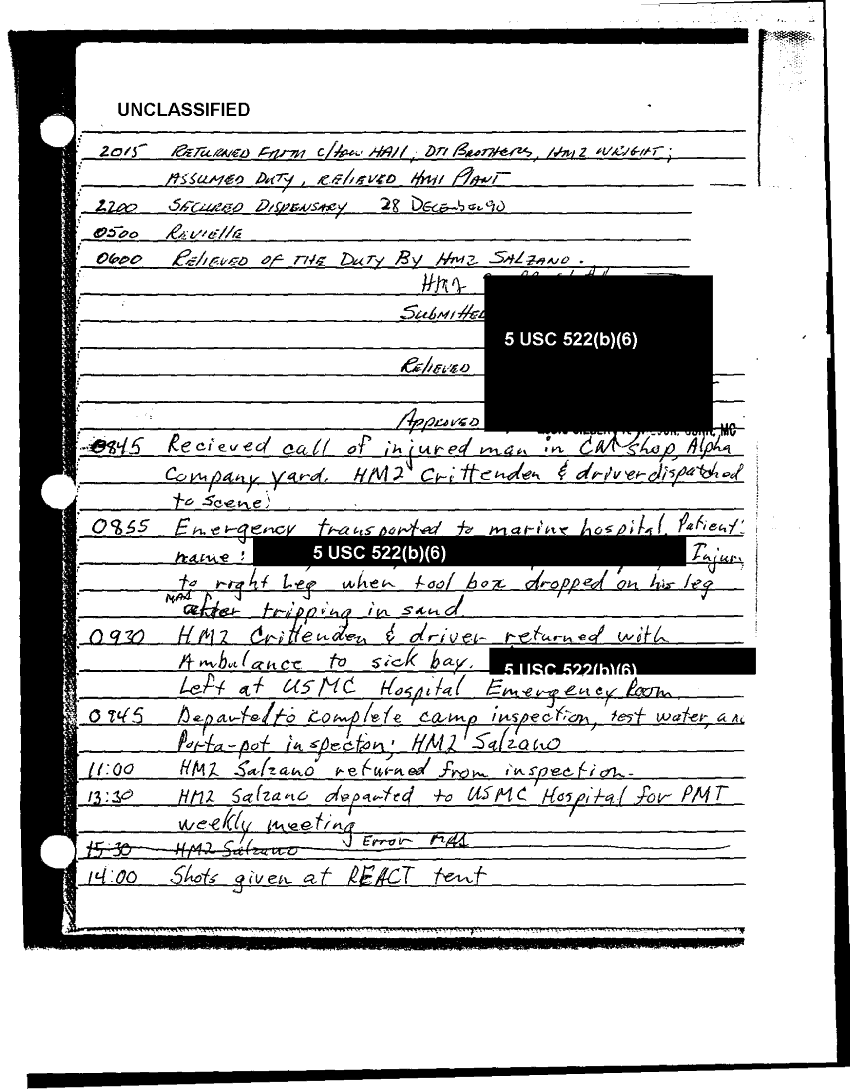 UNCLASSIFIED
2015 RETURNED FROM CHOW HALL, DTI BROTHERS, HM2 WRIGHT;
ASSUMED DUTY, RELIEVED HM1 PLANT
2200 SECURED DISPENSARY 28 DECEMBER 90
0500 REVIELLE
0600 RELIEVED OF THE DUTY BY HM2 SALZANO.
HM2
SUBMITTED
5 USC 522(b)(6)
RELIEVED
APPROVED
MC
0845 Recieved call of injured man in CM shop, Alpha
Company yard. HM2 Crittenden & driver dispatched
to scene.
0855 Emergency transported to marine hospital. Patient
name: 5 USC 522(b)(6) Injury
to right Leg when tool box dropped on his leg
MAS after tripping in sand
0930 HM2 Crittenden & driver returned with
Ambulance to sick bay. 5 USC 522(b)(6)
Left at USMC Hospital Emergency Room.
0945 Departed to complete camp inspection, test water, and
Porta-pot inspecton; HM2 Salzano
11:00 HM2 Salzano returned from inspection.
13:30 HM2 Salzano departed to USMC Hospital for PMT
weekly meeting
15:30 HM2 Salzano Error MAS
14:00 Shots given at REACT tent